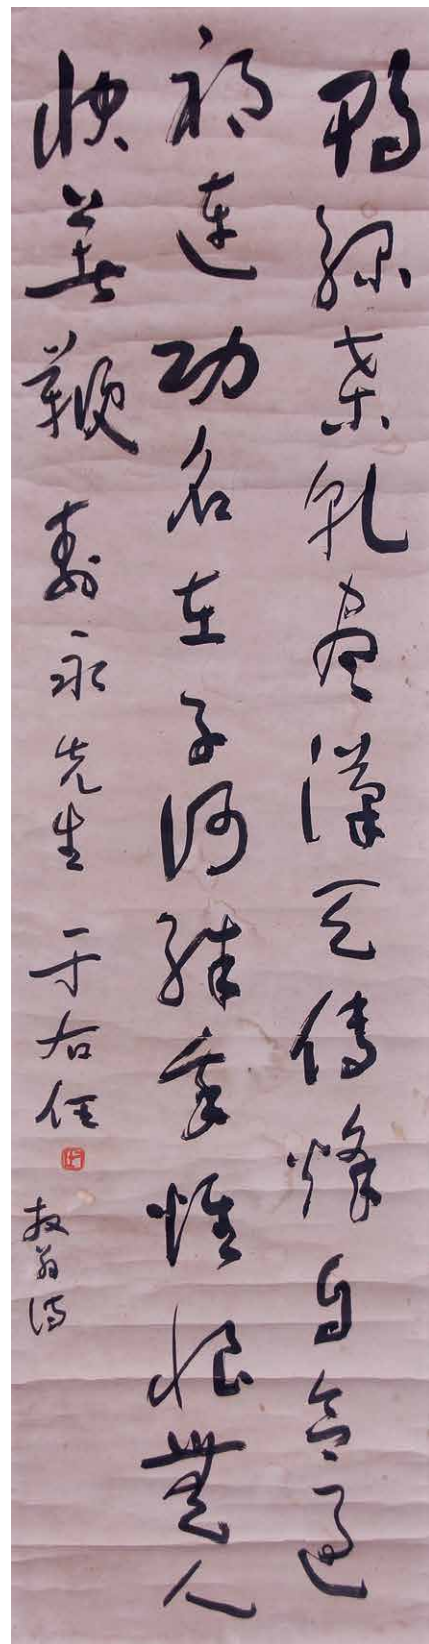 鴨綠桑乾盡漢天傳烽自合過
祁連功名在子何殊我惟恨無人
快著鞭 壽永先生 于右任 放翁詩